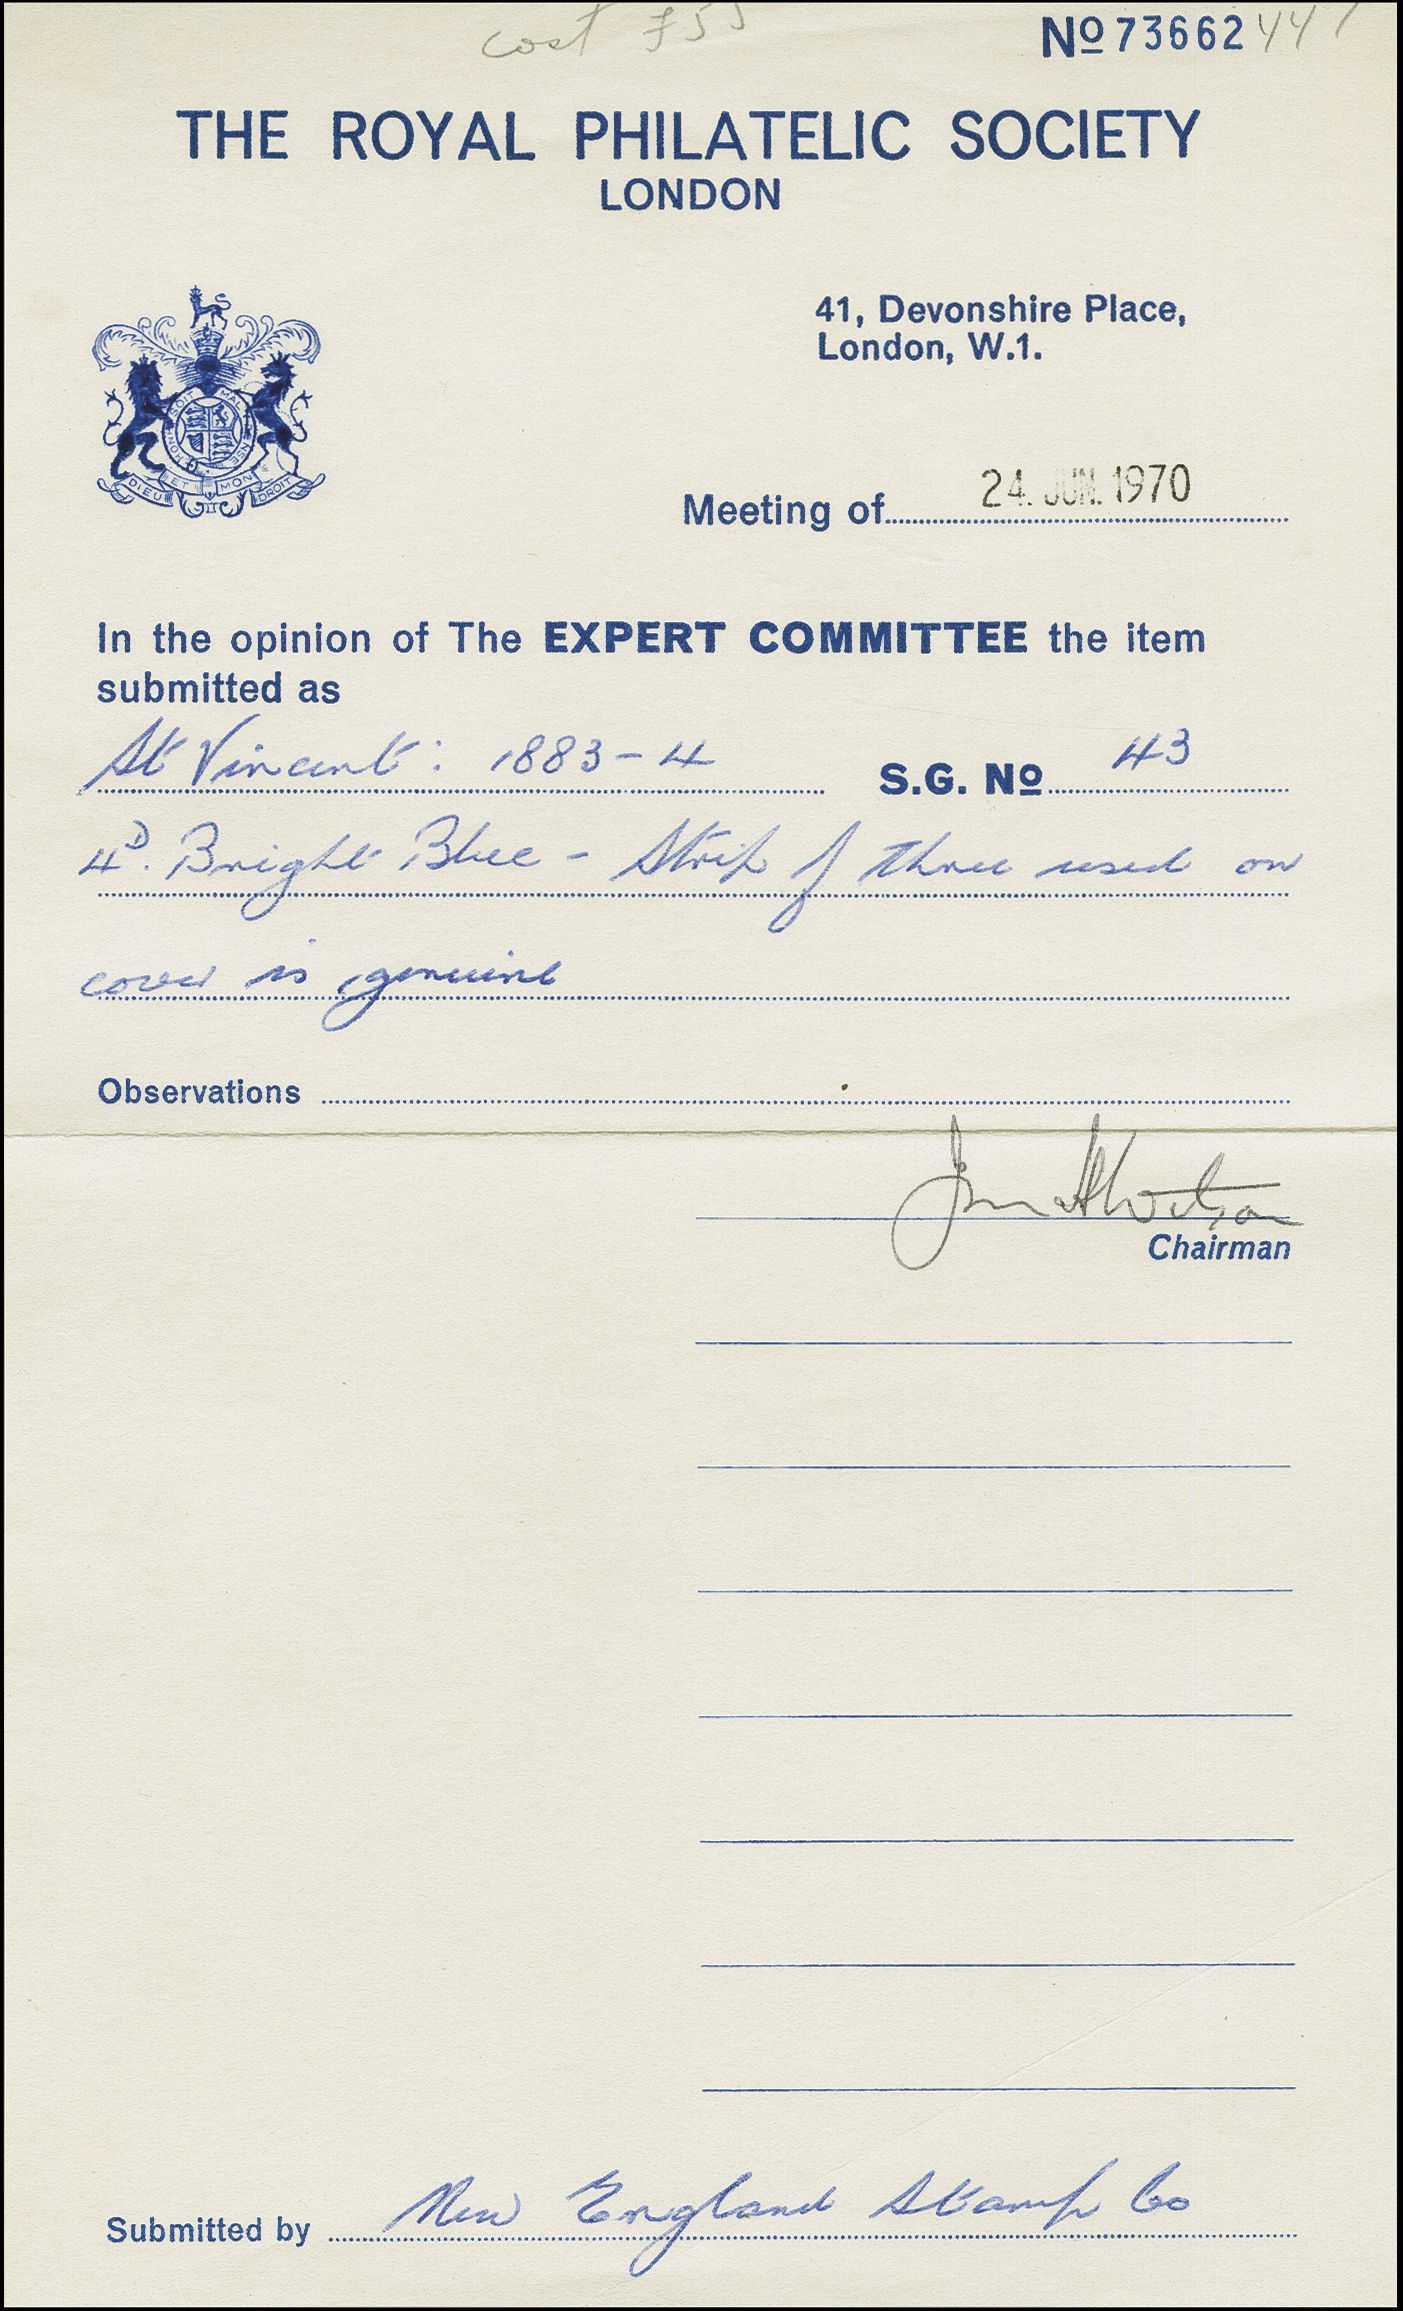 cost £55
Nº 73662
THE ROYAL PHILATELIC SOCIETY
LONDON
41, Devonshire Place,
London, W.1.
HONI SOIT QUI MAL Y PENSE
DIEU ET MON DROIT
Meeting of 24. JUN. 1970
In the opinion of The EXPERT COMMITTEE the item
submitted as
St Vincent: 1883-4 S.G. Nº 43
4D. Bright Blue - Strip of three used on
cover is genuine
Observations
Chairman
Submitted by New England Stamp Co